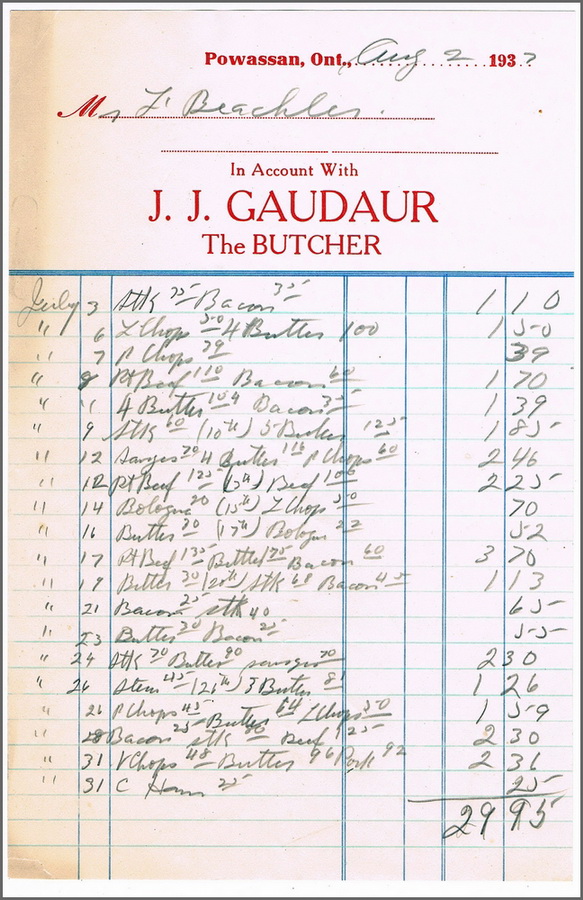 Powassan, Ont., Aug 2 1937
Mr F. Beachler.
In Account With
J. J. GAUDAUR
The BUTCHER
July 3 Stk 75 Bacon 35 1 10
" 6 L Chops 50 4 Butter 100 1 50
" 7 P Chops 39 39
" 8 Pt Beef 110 Bacon 60 1 70
" " 4 Butter 104 Bacon 35 1 39
" 9 Stk 60 (10th) 5 Butter 125 1 85
" 12 Sausges 70 4 Butter 116 P Chops 60 2 46
" 12 Pt Beef 125 Beef 100 2 25
" 14 Bologna 20 (15th) L Chops 50 70
" 16 Butter 30 (17th) Bologna 22 52
" 17 Pt Beef 135 Butter 175 Bacon 60 3 70
" 19 Butter 30 (20th) Stk 68 Bacon 45 1 13
" 21 Bacon 25 Stk 40 65
" 23 Butter 30 Bacon 25 55
" 24 Stk 70 Butter 90 Sausges 70 2 30
" 26 45 (26th) 3 Butter 81 1 26
" 26 P Chops 45 Butter 64 L Chops 50 1 59
" 28 Bacon 25 Stk 80 Beef 125 2 30
" 31 V Chops 48 Butter 96 Pork 92 2 31
" 31 C Ham 25 25
29 95